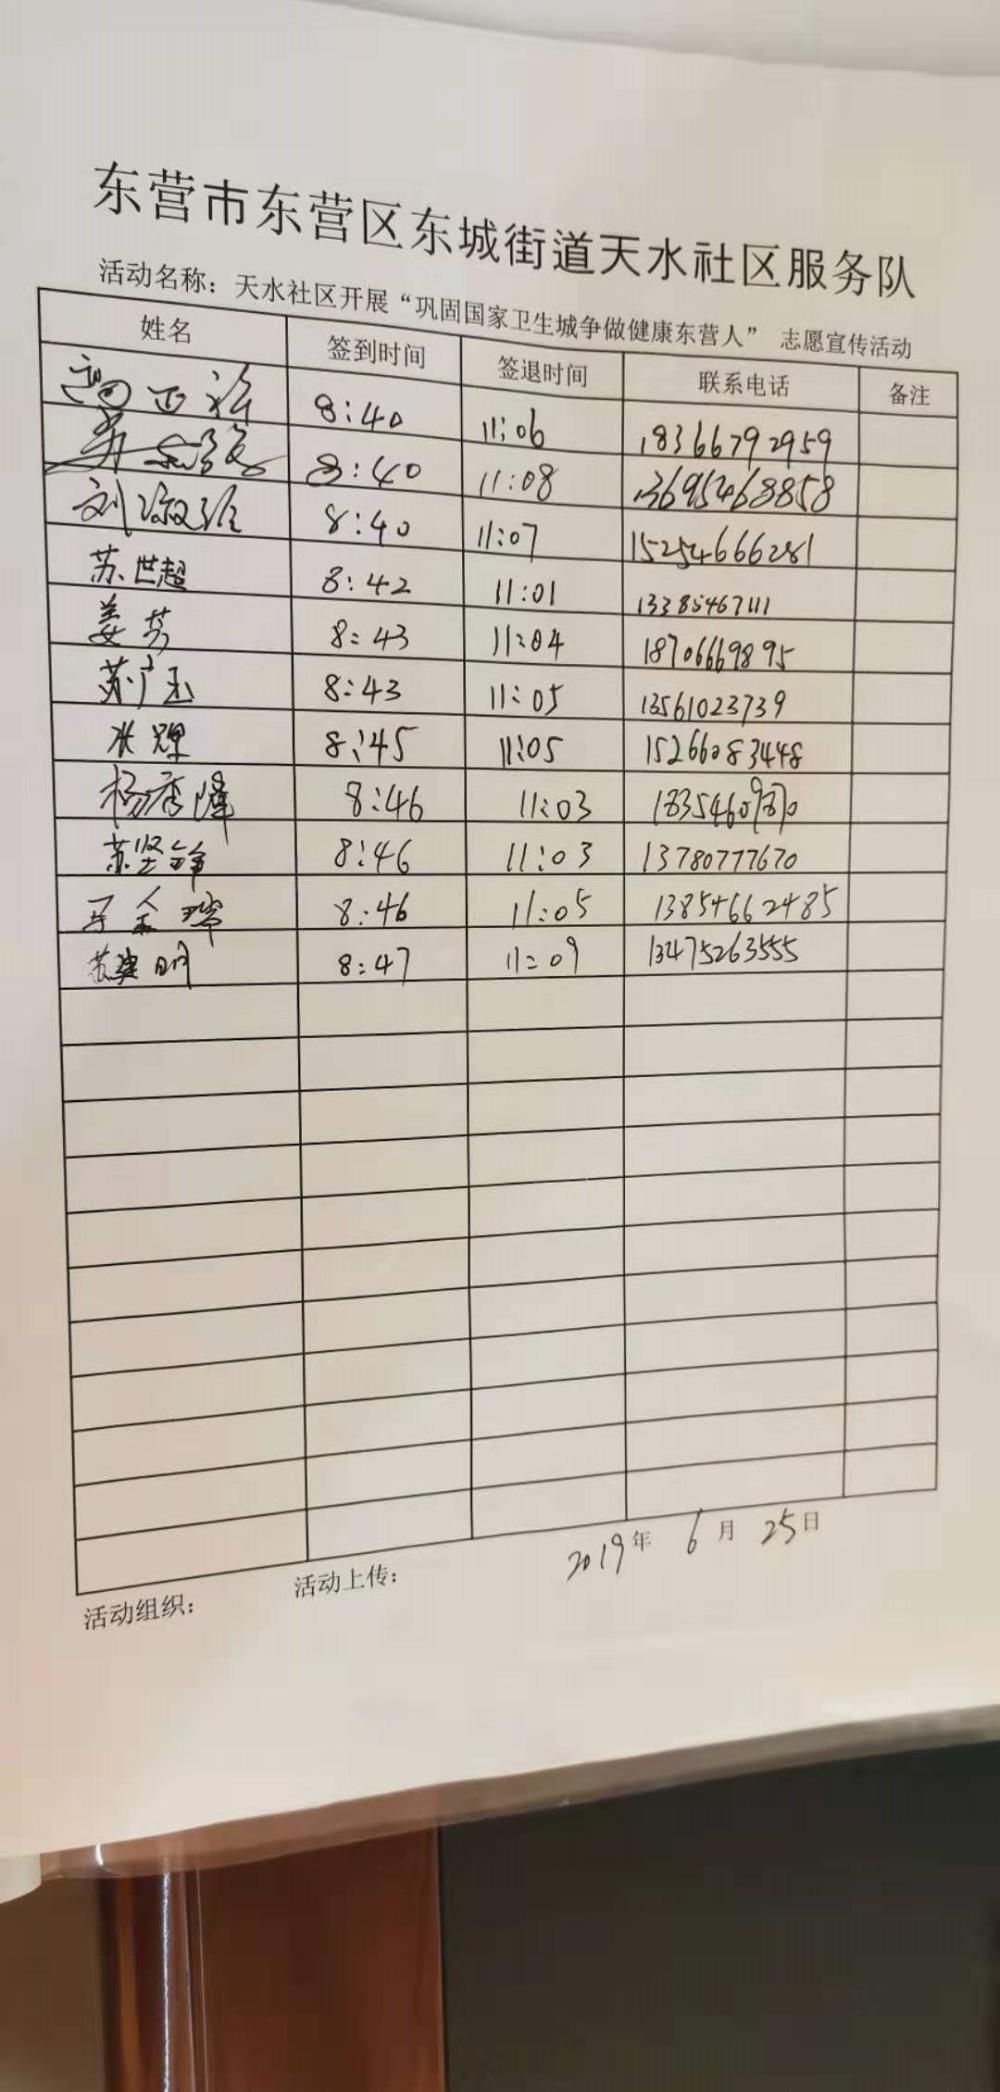 东营市东营区东城街道天水社区服务队
活动名称：天水社区开展“巩固国家卫生城争做健康东营人” 志愿宣传活动
姓名 签到时间 签退时间 联系电话 备注
8:40 11:06 18366792959
8:40 11:08 13695468858
刘 8:40 11:07 15254666281
苏世超 8:42 11:01 13385467111
姜芳 8:43 11:04 18706669895
苏广玉 8:43 11:05 13561023739
8:45 11:05 15266083448
杨秀峰 8:46 11:03
苏坚峰 8:46 11:03 13780777670
8:46 11:05 13854662485
苏建明 8:47 11:09 13475263555
2019年 6月 25日
活动组织： 活动上传：